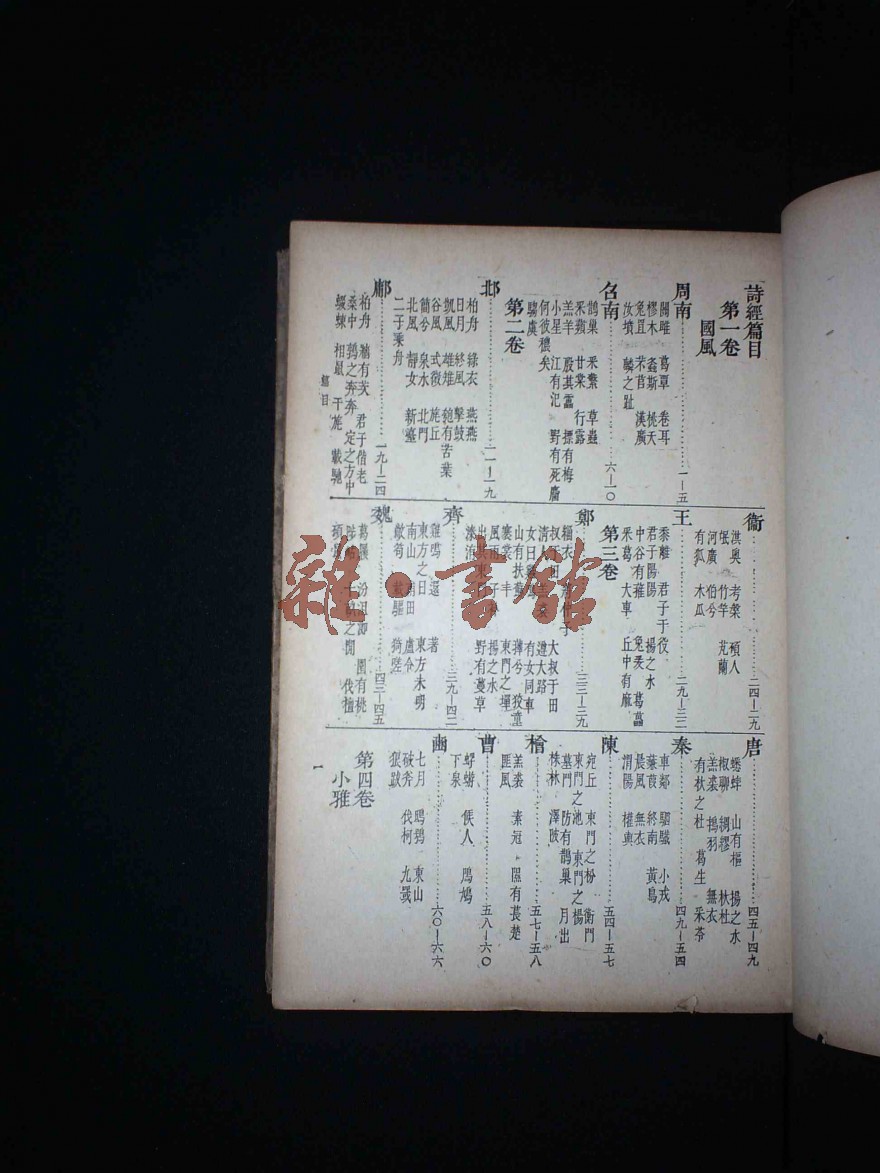 詩經篇目
第一卷
國風
周南 一—五
關雎 葛覃 卷耳
樛木 螽斯 桃夭
兔罝 芣苢 漢廣
汝墳 麟之趾
召南 六—一〇
鵲巢 采蘩 草蟲
采蘋 甘棠 行露
羔羊 殷其靁 摽有梅
小星 江有汜 野有死麕
何彼穠矣
騶虞
第二卷
邶 一一—一九
柏舟 綠衣 燕燕
日月 終風 擊鼓
凱風 雄雉 匏有苦葉
谷風 式微 旄丘
簡兮 泉水 北門
北風 靜女 新臺
二子乘舟
鄘 一九—二四
柏舟 牆有茨 君子偕老
桑中 鶉之奔奔 定之方中
蝃蝀 相鼠 干旄 載馳
衞 二四—二九
淇奧 考槃 碩人
氓 竹竿 芄蘭
河廣 伯兮
有狐 木瓜
王 二九—三三
黍離 君子于役
君子陽陽 揚之水
中谷有蓷 兔爰 葛藟
采葛 大車 丘中有麻
第三卷
鄭 三三—三九
緇衣
叔于田 大叔于田
清人 遵大路
女曰 有女同車
山有扶蘇 狡童
褰裳 丰 東門之墠
風雨 子衿 揚之水
出其東門 野有蔓草
溱洧
齊 三九—四二
雞鳴 還 著
東方之日 東方未明
南山 甫田 盧令
敝笱 載驅 猗嗟
魏 四三—四五
葛屨 汾沮洳 園有桃
陟岵 十畝之閒 伐檀
碩鼠
唐 四五—四九
蟋蟀 山有樞 揚之水
椒聊 綢繆 杕杜
羔裘 鴇羽 無衣
有杕之杜 葛生 采苓
秦 四九—五四
車鄰 駟驖 小戎
蒹葭 終南 黃鳥
晨風 無衣
渭陽 權輿
陳 五四—五七
宛丘 東門之枌 衡門
東門之池 東門之楊
墓門 防有鵲巢 月出
株林 澤陂
檜 五七—五八
羔裘 素冠 隰有萇楚
匪風
曹 五八—六〇
蜉蝣 候人 鳲鳩
下泉
豳 六〇—六六
七月 鴟鴞 東山
破斧 伐柯 九罭
狼跋
第四卷
小雅
篇目
一
雜·書館